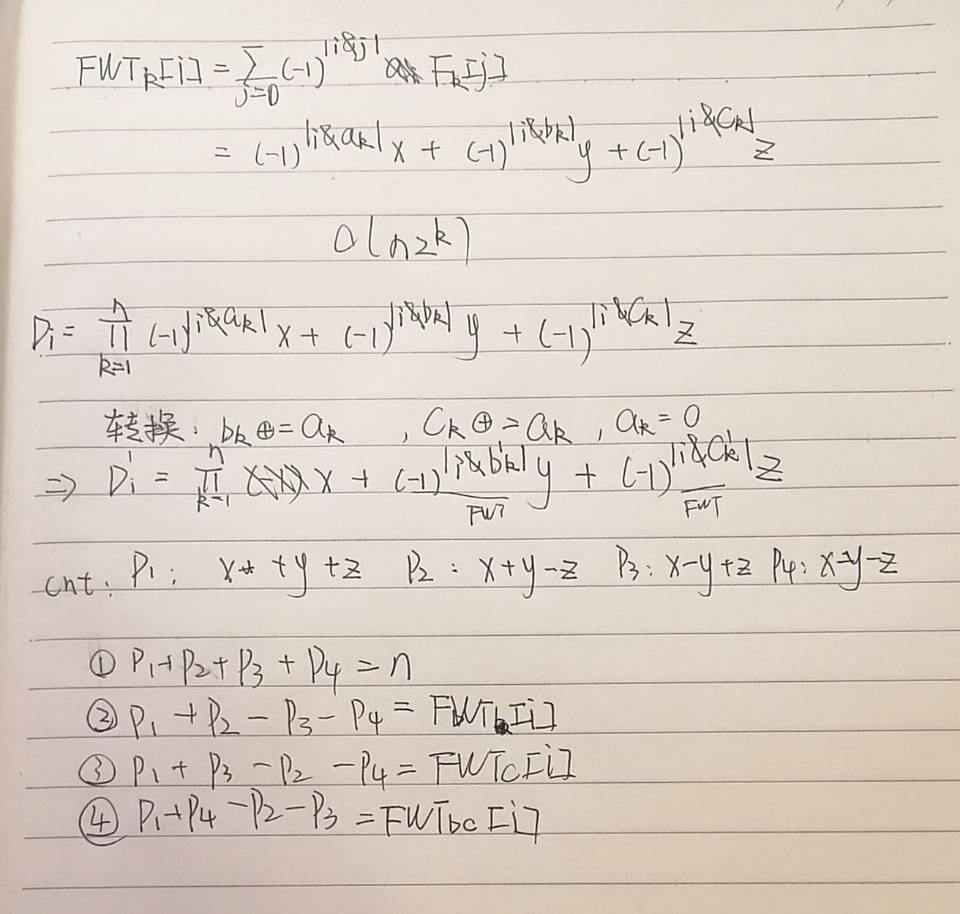 FWTk[i] = ∑j=0 (-1)^|i&j| Fk[j]
= (-1)^|i&ak| x + (-1)^|i&bk| y + (-1)^|i&ck| z
O(n2^k)
Di = ∏k=1^n (-1)^|i&ak| x + (-1)^|i&bk| y + (-1)^|i&ck| z
转换: bk ⊕= ak , ck ⊕= ak , ak = 0
⇒ Di' = ∏k=1^n x + (-1)^|i&b'k| y + (-1)^|i&c'k| z
FWT FWT
cnt: P1: x + y + z P2: x+y-z P3: x-y+z P4: x-y-z
① P1+P2+P3+P4 = n
② P1+P2-P3-P4 = FWTb[i]
③ P1+P3-P2-P4 = FWTc[i]
④ P1+P4-P2-P3 = FWTbc[i]